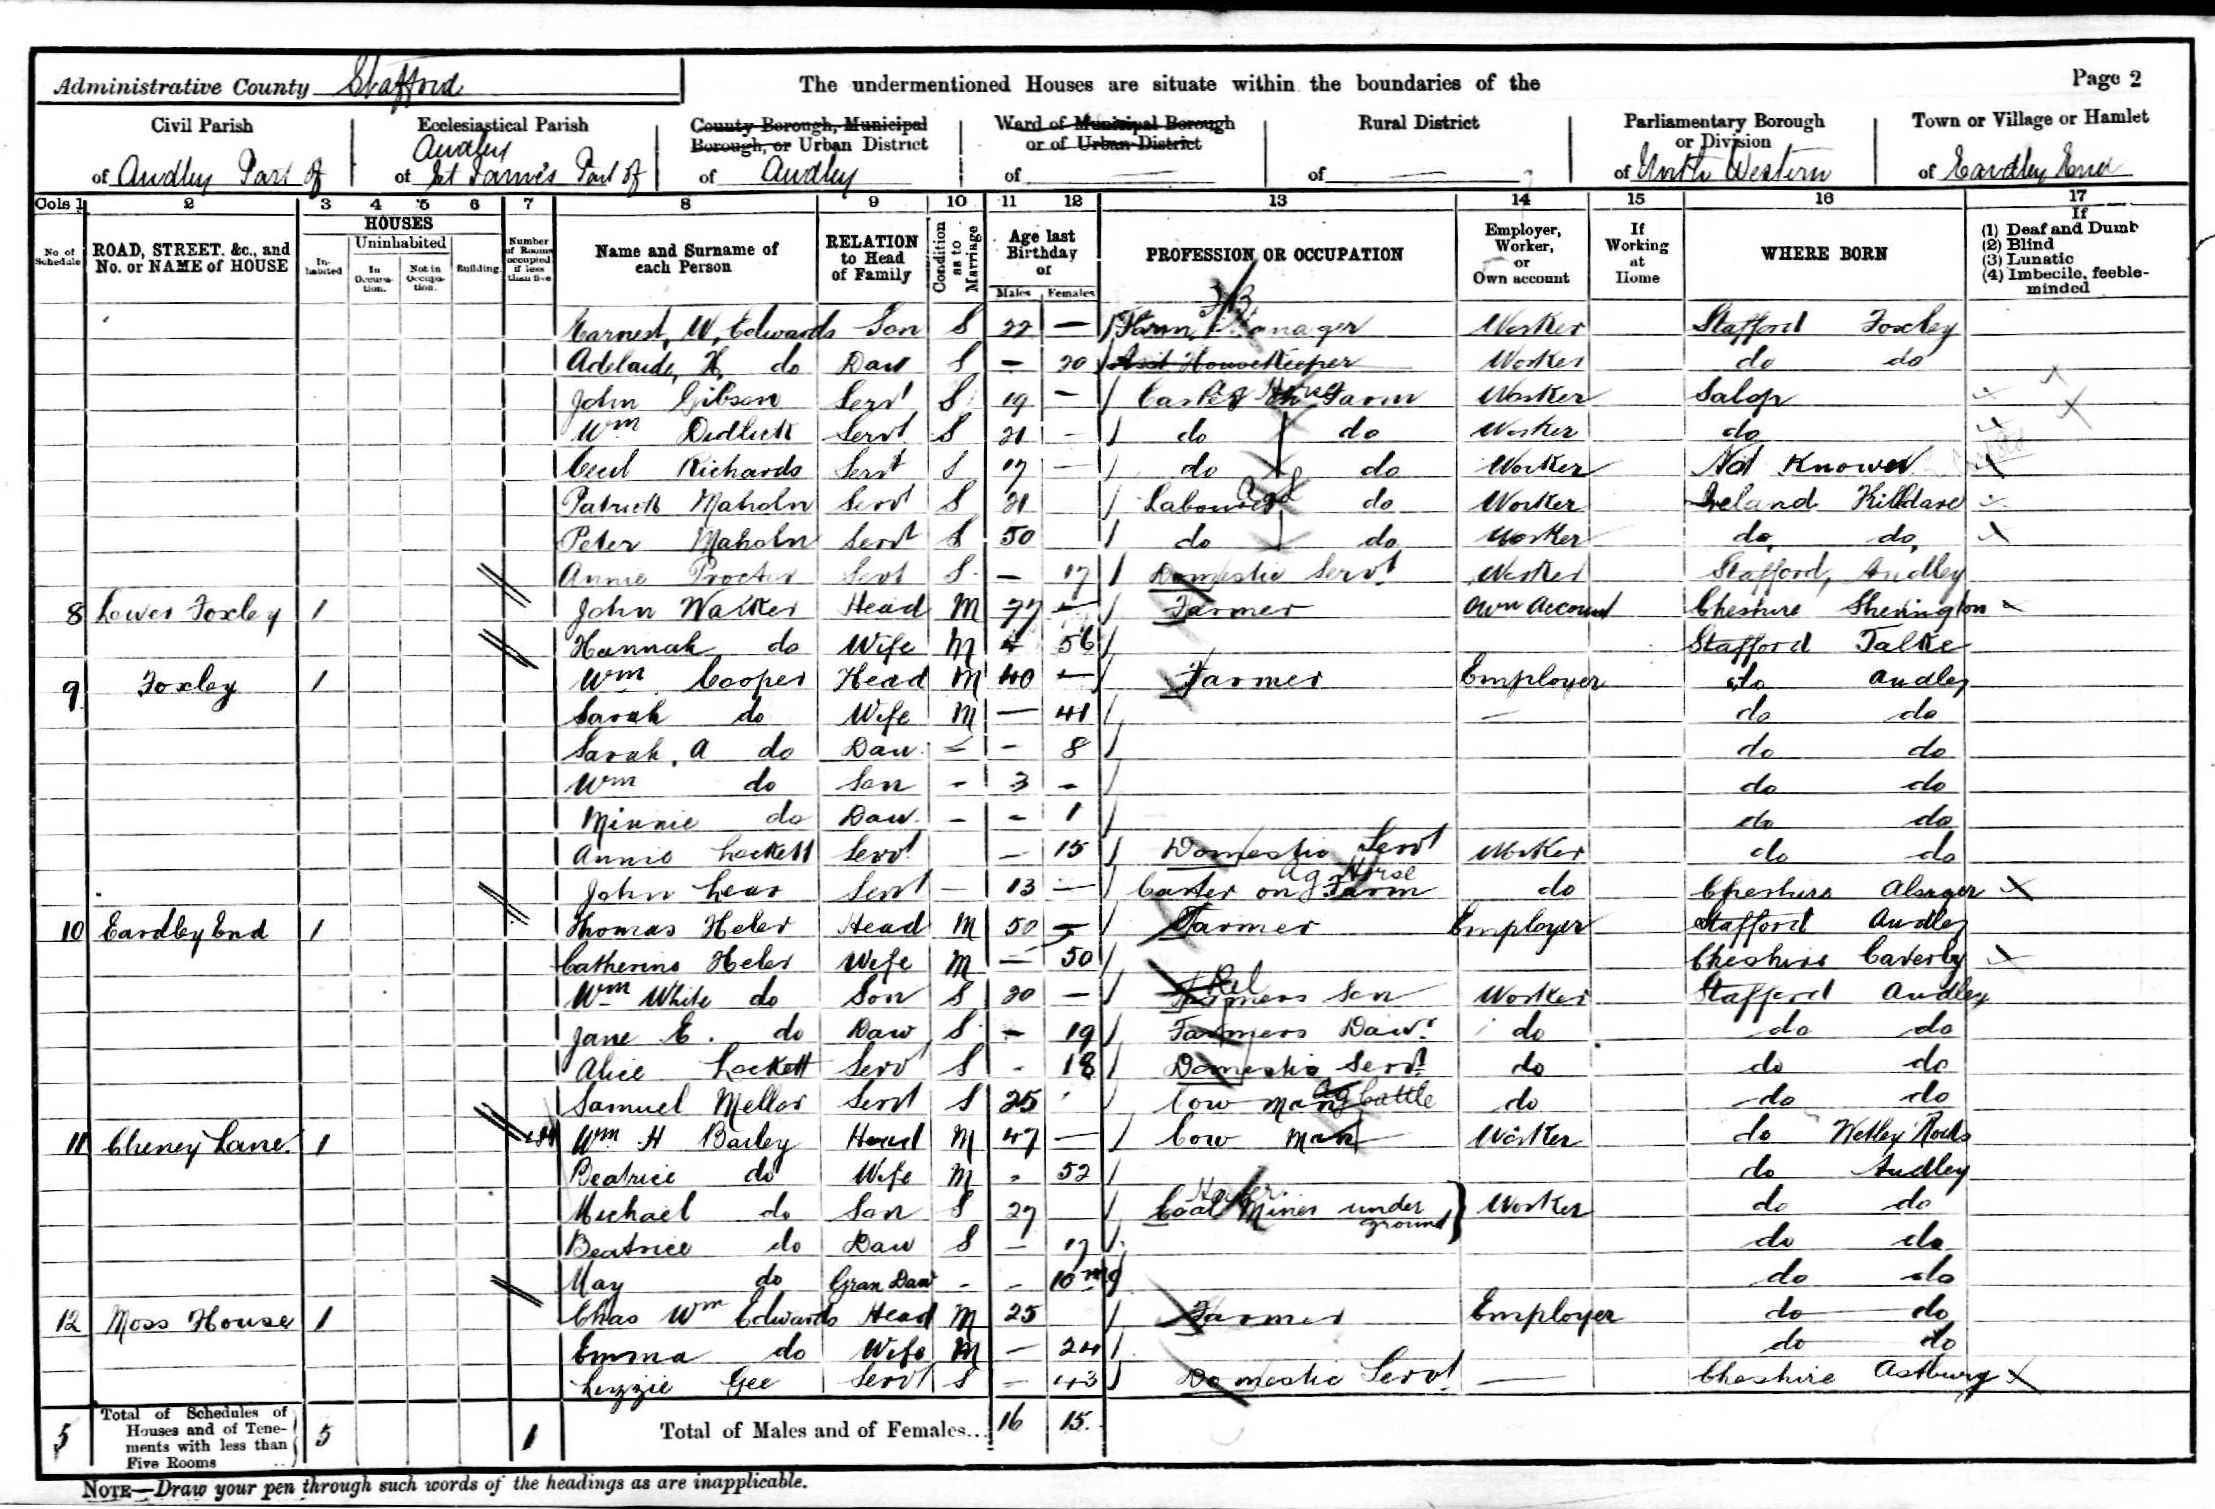 Administrative County Stafford
The undermentioned Houses are situate within the boundaries of the
Page 2
Civil Parish
of Audley Part of
Ecclesiastical Parish
Audley
of St James Part of
County Borough, Municipal
Borough, or Urban District
of Audley
Ward of Municipal Borough
or of Urban District
of —
Rural District
of —
Parliamentary Borough
or Division
of North Western
Town or Village or Hamlet
of Eardley End
Cols 1 2 3 4 5 6 7 8 9 10 11 12 13 14 15 16 17
No of Schedule
ROAD, STREET, &c., and No. or NAME of HOUSE
HOUSES
Inhabited
Uninhabited
In Occupation.
Not in Occupation.
Building
Number of Rooms occupied if less than five
Name and Surname of each Person
RELATION to Head of Family
Condition as to Marriage
Age last Birthday of
Males Females
PROFESSION OR OCCUPATION
Employer, Worker, or Own account
If Working at Home
WHERE BORN
If
(1) Deaf and Dumb
(2) Blind
(3) Lunatic
(4) Imbecile, feeble-minded
Earnest, W, Edwards Son S 22 — Farm Manager Worker Stafford Foxley
Adelaide, H, do Dau S — 20 Asst Housekeeper Worker do do
John Gibson Servt S 19 — Carter on Farm Ag Horse Worker Salop
Wm Didlick Servt S 21 — do do Worker do
Cecil Richards Servt S 17 — do do Worker Not Known
Patrick Maholn Servt S 21 Labourer Agl do Worker Ireland Killdare
Peter Maholn Servt S 50 do do Worker do, do,
Annie Procter Servt S — 17 Domestic Servt Worker Stafford, Audley
8 Lower Foxley 1 John Walker Head M 77 — Farmer Own Account Cheshire
Hannah do Wife M 56 Stafford Talke
9 Foxley 1 Wm Cooper Head M 40 — Farmer Employer do Audley
Sarah do Wife M — 41 — do do
Sarah, A do Dau — — 8 do do
Wm do Son - 3 - do do
Minnie do Dau - - 1 do do
Annie Lockett Servt — 15 Domestic Servt Worker do do
John Lear Servt — 13 — Carter on Farm Ag Horse do Cheshire Alsager
10 Eardley End 1 Thomas Heler Head M 50 — Farmer Employer Stafford Audley
Catherine Heler Wife M — 50 Cheshire
Wm White do Son S 20 — Farmers Son Rel Worker Stafford Audley
Jane E. do Dau S - 19 Farmers Daur do do do
Alice Lockett Serv S - 18 Domestic Servt do do do
Samuel Mellor Servt S 25 Cow man Ag Cattle do do do
11 Cheney Lane 1 4 Wm H Bailey Head M 47 — Cow man Worker do Wetley Rocks
Beatrice do Wife M - 52 do Audley
Michael do Son S 27 Coal Miner under ground Hewer Worker do do
Beatrice do Dau S — 17 do do
May do Gran Daur - - 10 mo do do
12 Moss House 1 Chas Wm Edwards Head M 25 Farmer Employer do do
Emma do Wife M — 24 do do
Lizzie Gee Servt S — 43 Domestic Servt — Cheshire Astbury
5 Total of Schedules of Houses and of Tenements with less than Five Rooms 5 1 Total of Males and of Females... 16 15
NOTE—Draw your pen through such words of the headings as are inapplicable.